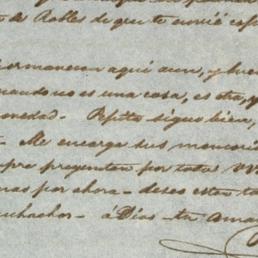 de Robles de que te envié cop
ermanecen aqui aun, y bue
uando no es una cosa, es otra, y
onedad. Pepita sigue bien,
Me encarga sus memori
pre preguntan por todos VV
mas por ahora - deseo esten to
uchachos - á Dios - tu ama